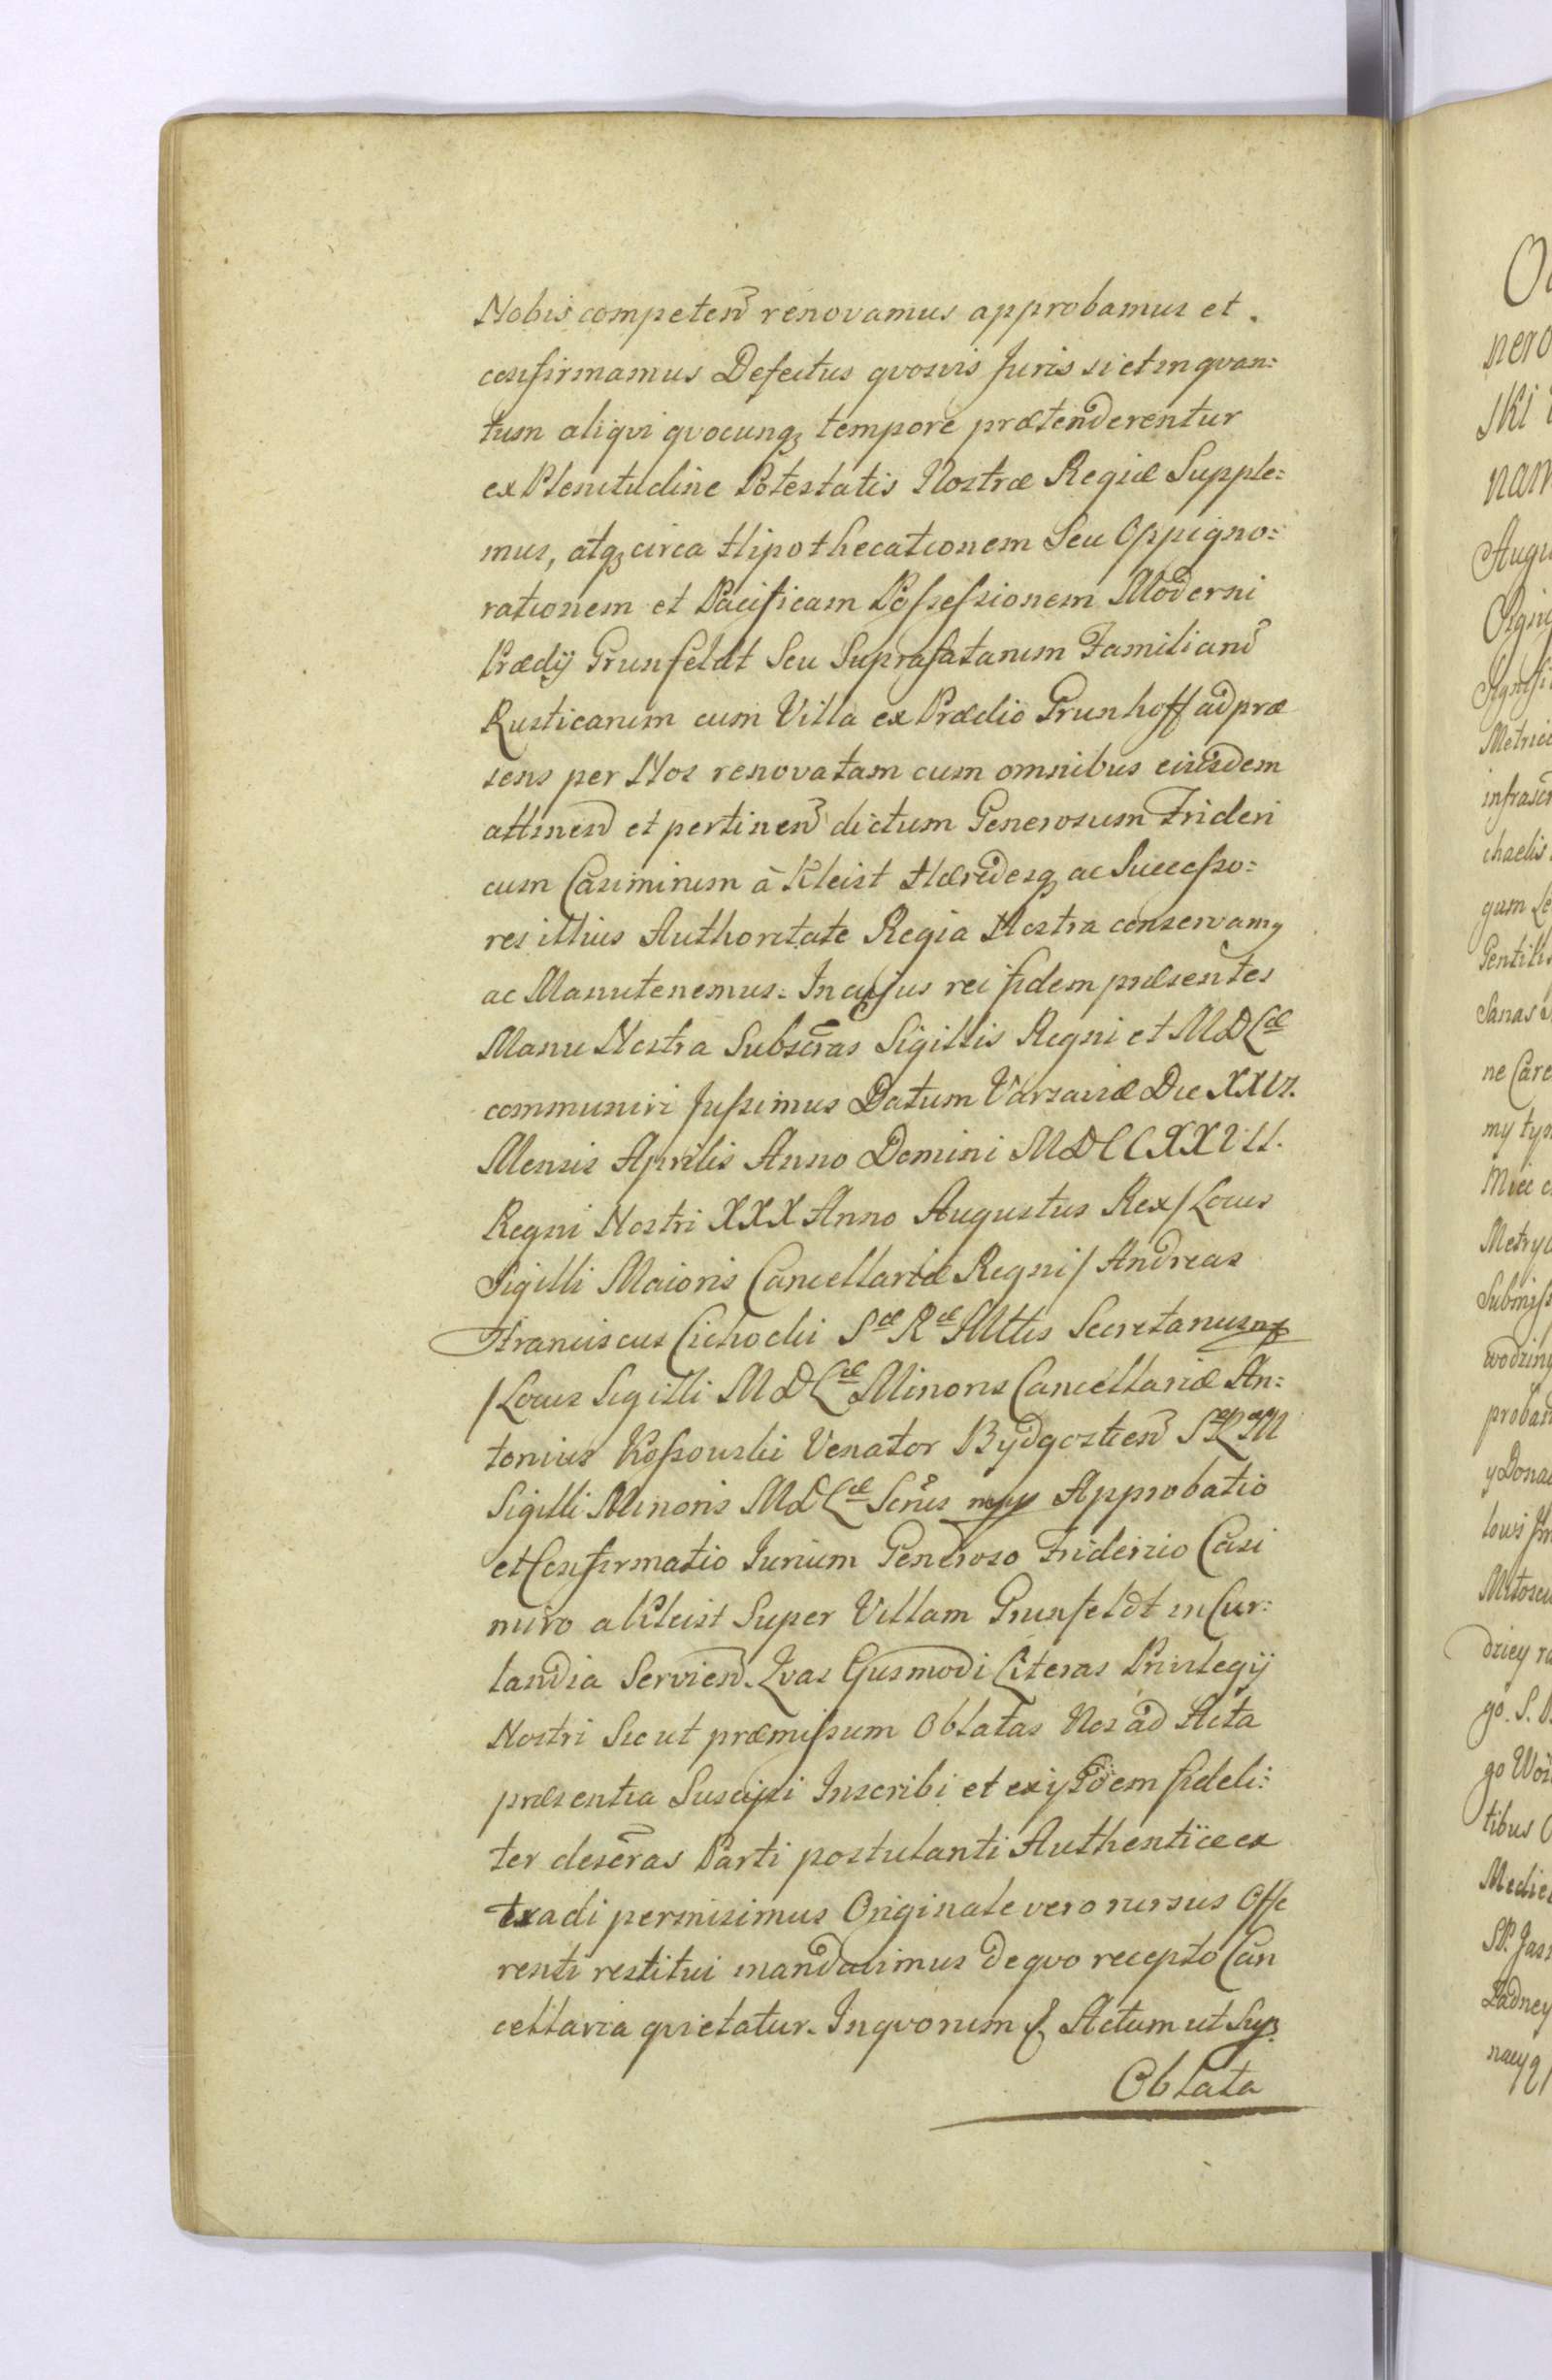 Nobis competen̄ renovamus approbamus et
confirmamus Defectus qvosvis Juris si et in qvan:
tum aliqvi qvocunq₃ tempore prætenderentur
ex Plenitudine Potestatis Nostræ Regiæ Supple:
mus, atq₃ circa Hipothecationem Seu Oppigno:
rationem et Pacificam Possessionem Moderni
Prædij Grunfeldt Seu Suprafatarum Familiarū
Rusticarum cum Villa ex Prædio Grunhoff ad præ
sens per Nos renovatam cum omnibus eiusdem
attinen̄ et pertinen̄ dictum Generosum Frideri
cum Casimirum à Kleist Hæredesq₃ ac Successo:
res illius Authoritate Regia Nostra conservamꝯ
ac Manutenemus. In cujus rei fidem præsentes
Manu Nostra Subscr̄as Sigillis Regni et MDLæ
communiri Jussimus Datum Varsaviæ Die
Mensis Aprilis Anno Domini MDCCXXVII.
Regni Nostri XXX Anno Augustus Rex / Locus
Sigilli Maioris Cancellariæ Regni / Andreas
Franciscus Cichocki Sæ Ræ Mttis Secretarius mp
/ Locus Sigilli MDLæ Minoris Cancellariæ An:
tonius Kossowski Venator Bydgostien̄ SRM
Sigilli Minoris MDLæ Scr̄ius mpp Approbatio
et Confirmatio Jurium Generoso Friderico Casi
miro a Kleist Super Villam Grunfeldt in Cur:
landia Servien̄. Qvas Ejusmodi Literas Privilegij
Nostri Sicut præmissum Oblatas Nos ad Acta
præsentia Suscipi Inscribi et ex ijsdem fideli:
ter descr̄as Parti postulanti Authentice ex
tradi permisimus Originale vero rursus Offe
renti restitui mandavimus de qvo recepto Can
cellaria qvietatur. In qvorum &. Actum ut Sup.
Oblata
nero
ski
nam
Augu
Metric
infrascr
chaelis
gum Le
Gentili
ne Care
Metry
Submiss
proban
y Dona
go. S.
go Woi
tibus